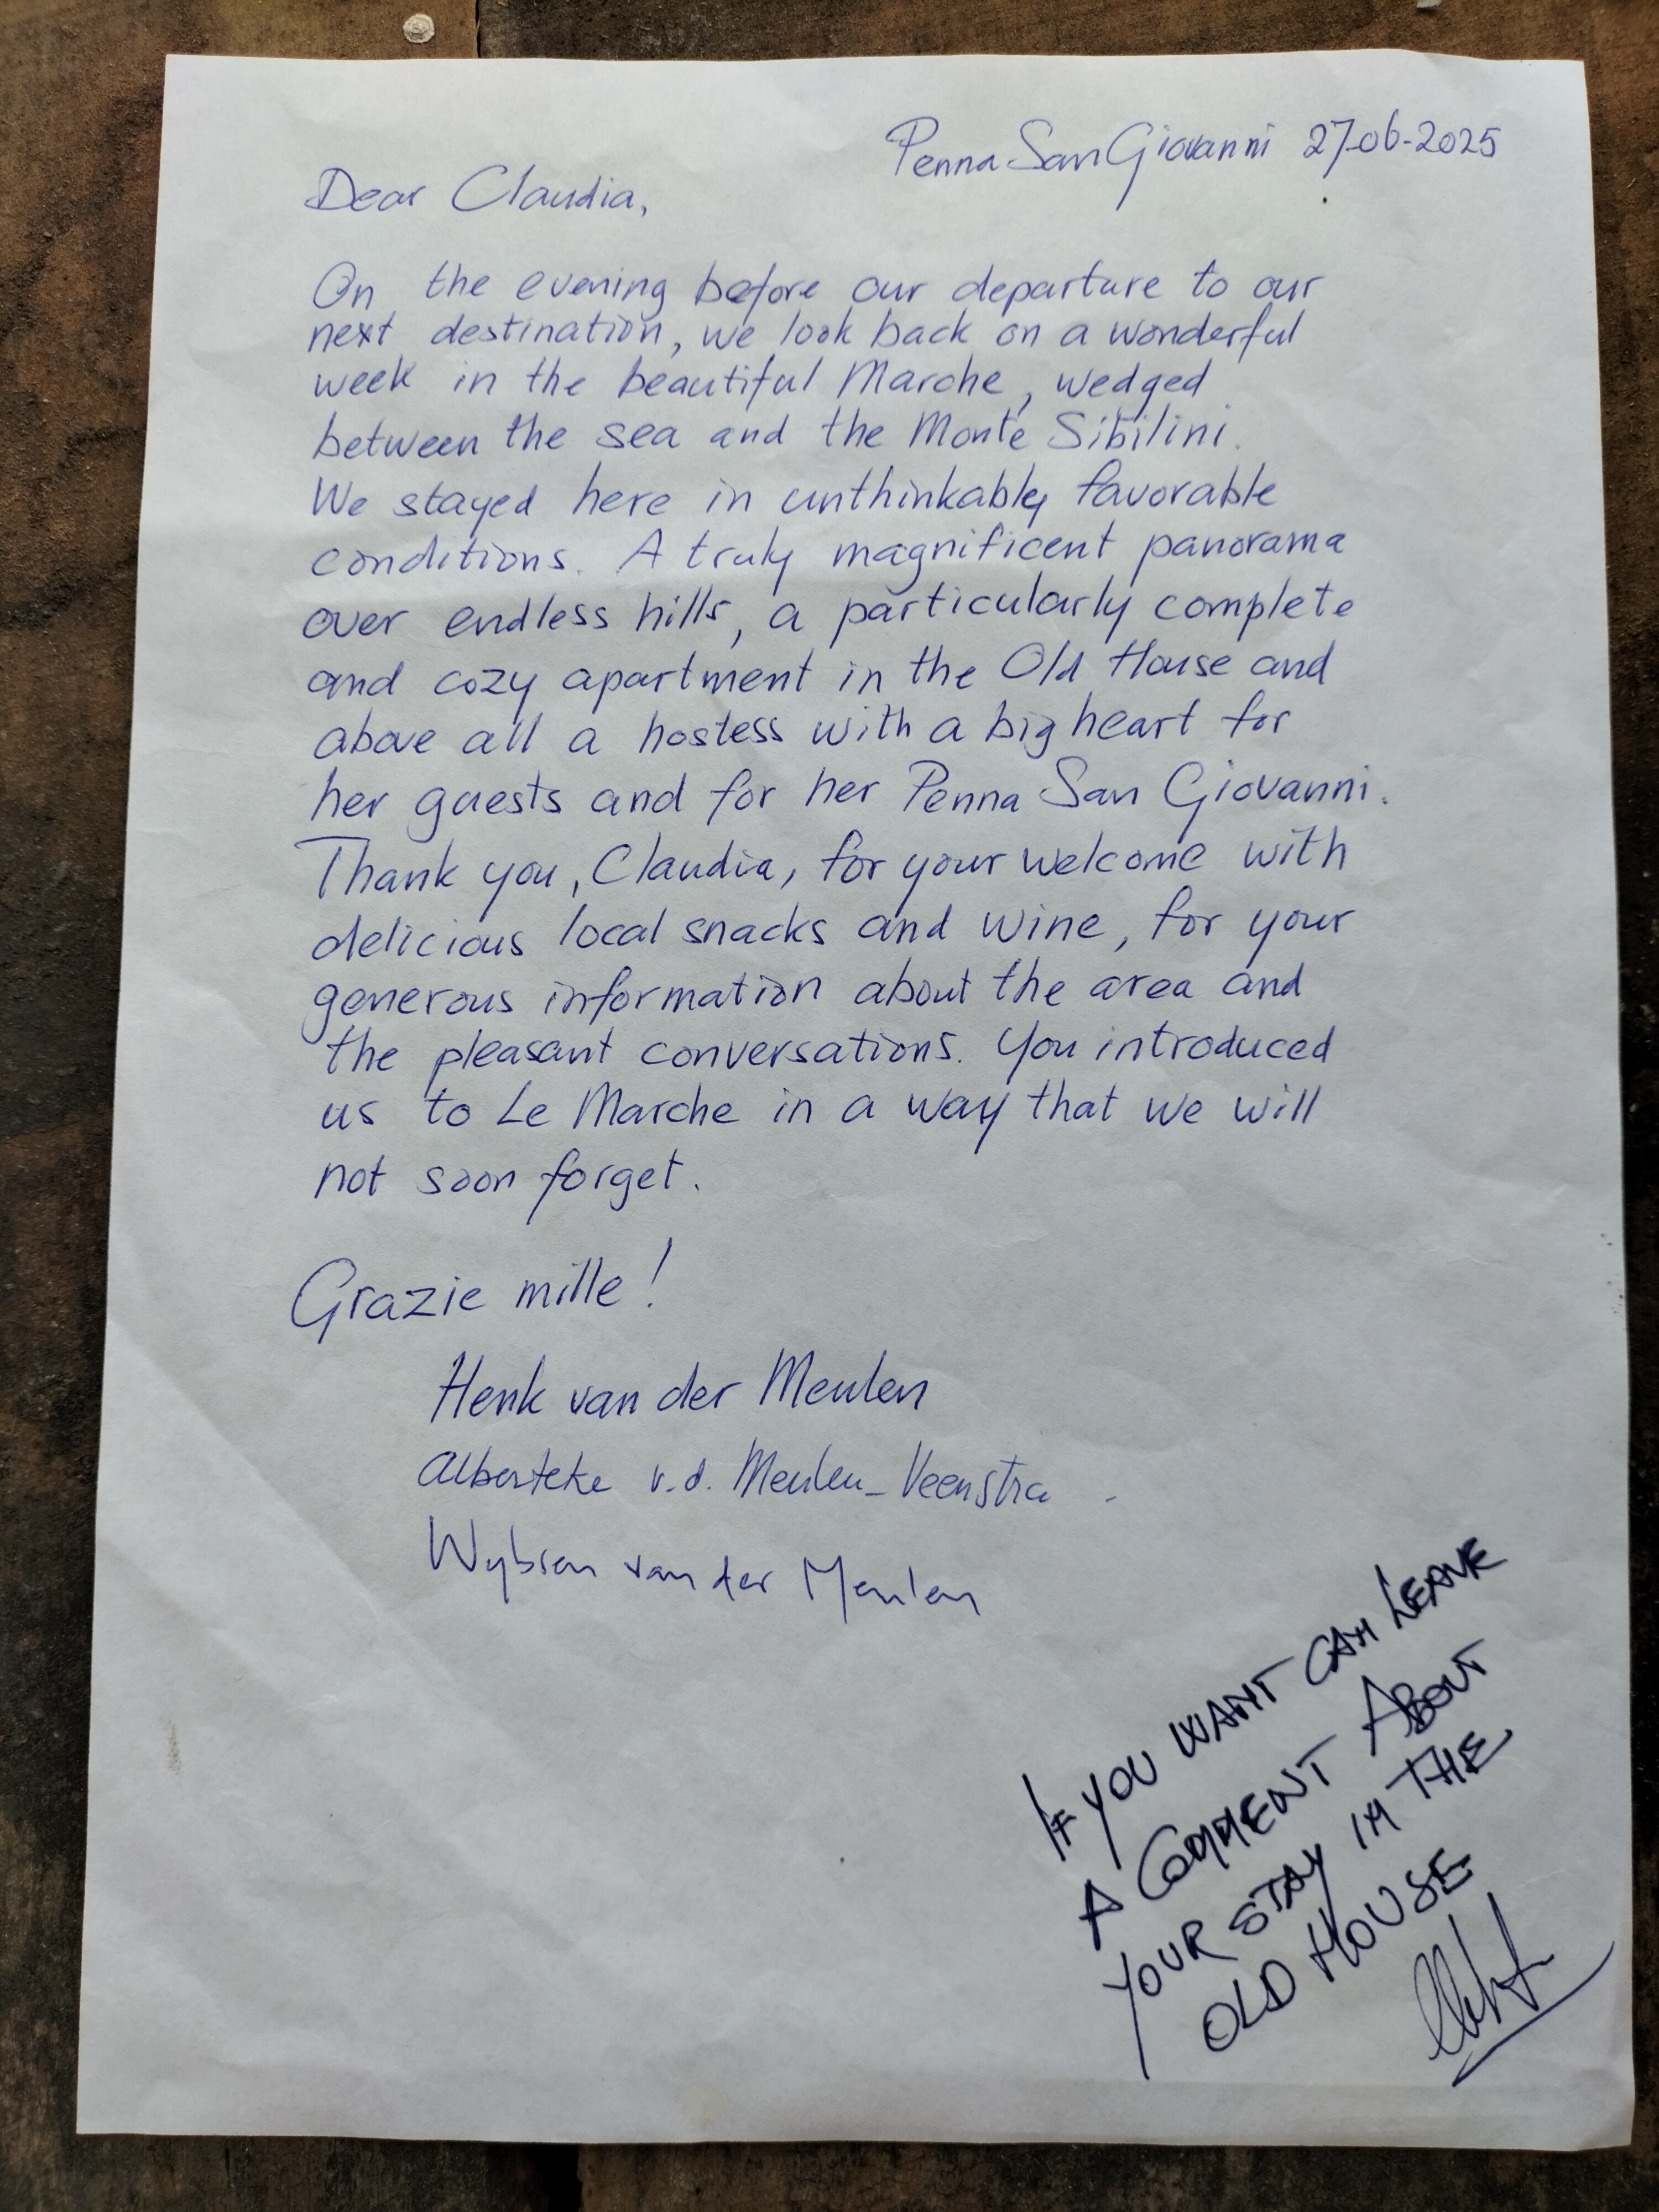 Penna San Giovanni 27-06-2025
Dear Claudia,
On the evening before our departure to our
next destination, we look back on a wonderful
week in the beautiful Marche, wedged
between the sea and the Monte Sibilini.
We stayed here in unthinkably favorable
conditions. A truly magnificent panorama
over endless hills, a particularly complete
and cozy apartment in the Old House and
above all a hostess with a big heart for
her guests and for her Penna San Giovanni.
Thank you, Claudia, for your welcome with
delicious local snacks and wine, for your
generous information about the area and
the pleasant conversations. You introduced
us to Le Marche in a way that we will
not soon forget.
Grazie mille!
Henk van der Meulen
Alberteke v.d. Meulen-Veenstra
van der Meulen
IF YOU WANT CAN LEAVE
A COMMENT ABOUT
YOUR STAY IN THE
OLD HOUSE